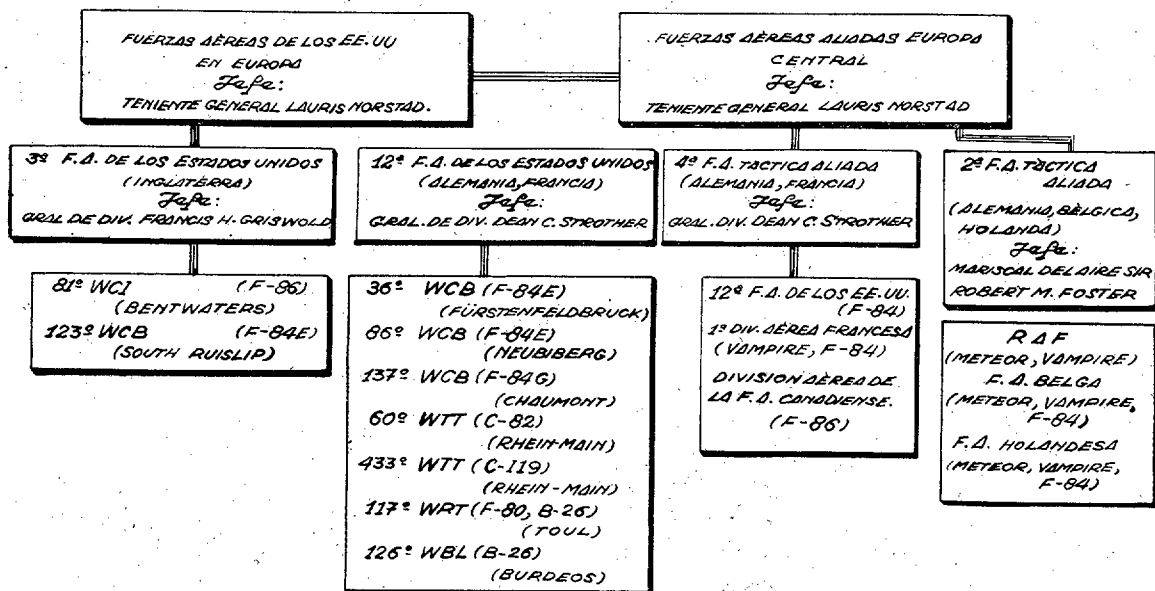 FUERZAS AÉREAS DE LOS EE.UU
EN EUROPA
Jefe:
TENIENTE GENERAL LAURIS NORSTAD.
FUERZAS AÉREAS ALIADAS EUROPA
CENTRAL
Jefe:
TENIENTE GENERAL LAURIS NORSTAD
3ª F.A. DE LOS ESTADOS UNIDOS
(INGLATERRA)
Jefe:
GRAL DE DIV. FRANCIS H. GRISWOLD
12ª F.A. DE LOS ESTADOS UNIDOS
(ALEMANIA, FRANCIA)
Jefe:
GRAL. DE DIV. DEAN C. STROTHER
4ª F.A. TACTICA ALIADA
(ALEMANIA, FRANCIA)
Jefe:
GRAL. DIV. DEAN C. STROTHER
2ª F.A. TÁCTICA
ALIADA
(ALEMANIA, BÉLGICA,
HOLANDA)
Jefe:
MARISCAL DEL AIRE SIR
ROBERT M. FOSTER
81º WCI (F-86)
(BENTWATERS)
123º WCB (F-84E)
(SOUTH RUISLIP)
36º WCB (F-84E)
(FÜRSTENFELDBRUCK)
86º WCB (F-84E)
(NEUBIBERG)
137º WCB (F-84G)
(CHAUMONT)
60º WTT (C-82)
(RHEIN-MAIN)
433º WTT (C-119)
(RHEIN-MAIN)
117º WRT (F-80, B-26)
(TOUL)
126º WBL (B-26)
(BURDEOS)
12ª F.A. DE LOS EE.UU.
(F-84)
1ª DIV. AÉREA FRANCESA
(VAMPIRE, F-84)
DIVISION AÉREA DE
LA F.A. CANADIENSE.
(F-86)
RAF
(METEOR, VAMPIRE)
F.A. BELGA
(METEOR, VAMPIRE,
F-84)
F.A. HOLANDESA
(METEOR, VAMPIRE,
F-84)